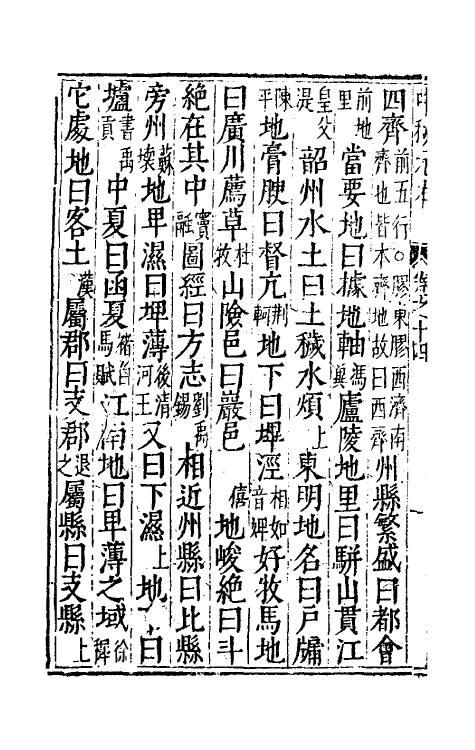 四齊前五行○膠東膠西濟南齊地皆本齊地故曰西齊州縣繁盛曰都會
前地里當要地曰據地軸馮巽廬陵地里曰駢山貫江
皇父湜韶州水土曰土穢水煩上東明地名曰戸牖
陳平地膏腴曰督亢荆軻地下曰埤溼相如音婢好牧馬地
曰廣川薦草杜牧山險邑曰巖邑僖地峻絶曰斗
絶在其中竇融圖經曰方志劉禹錫相近州縣曰比縣
旁州蘇壞地卑濕曰埤薄後清河王又曰下濕上地曰
壚書禹貢中夏曰函夏馬賦江南地曰卑薄之域徐稺
它處地曰客土漢屬郡曰支郡退之屬縣曰支縣上